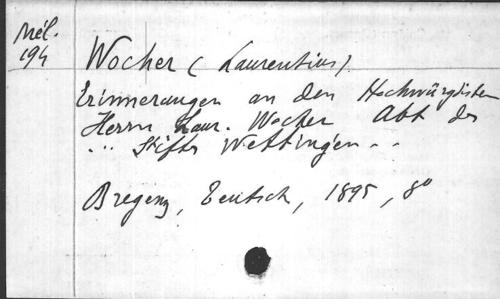 Mél.
194
Wocher (Laurentius)
Erinnerungen an den Hochwürdgsten
Herrn Laur. Wocher Abt des
... Stifts Wettingen ..
Bregenz, Teutsch, 1895, 8º